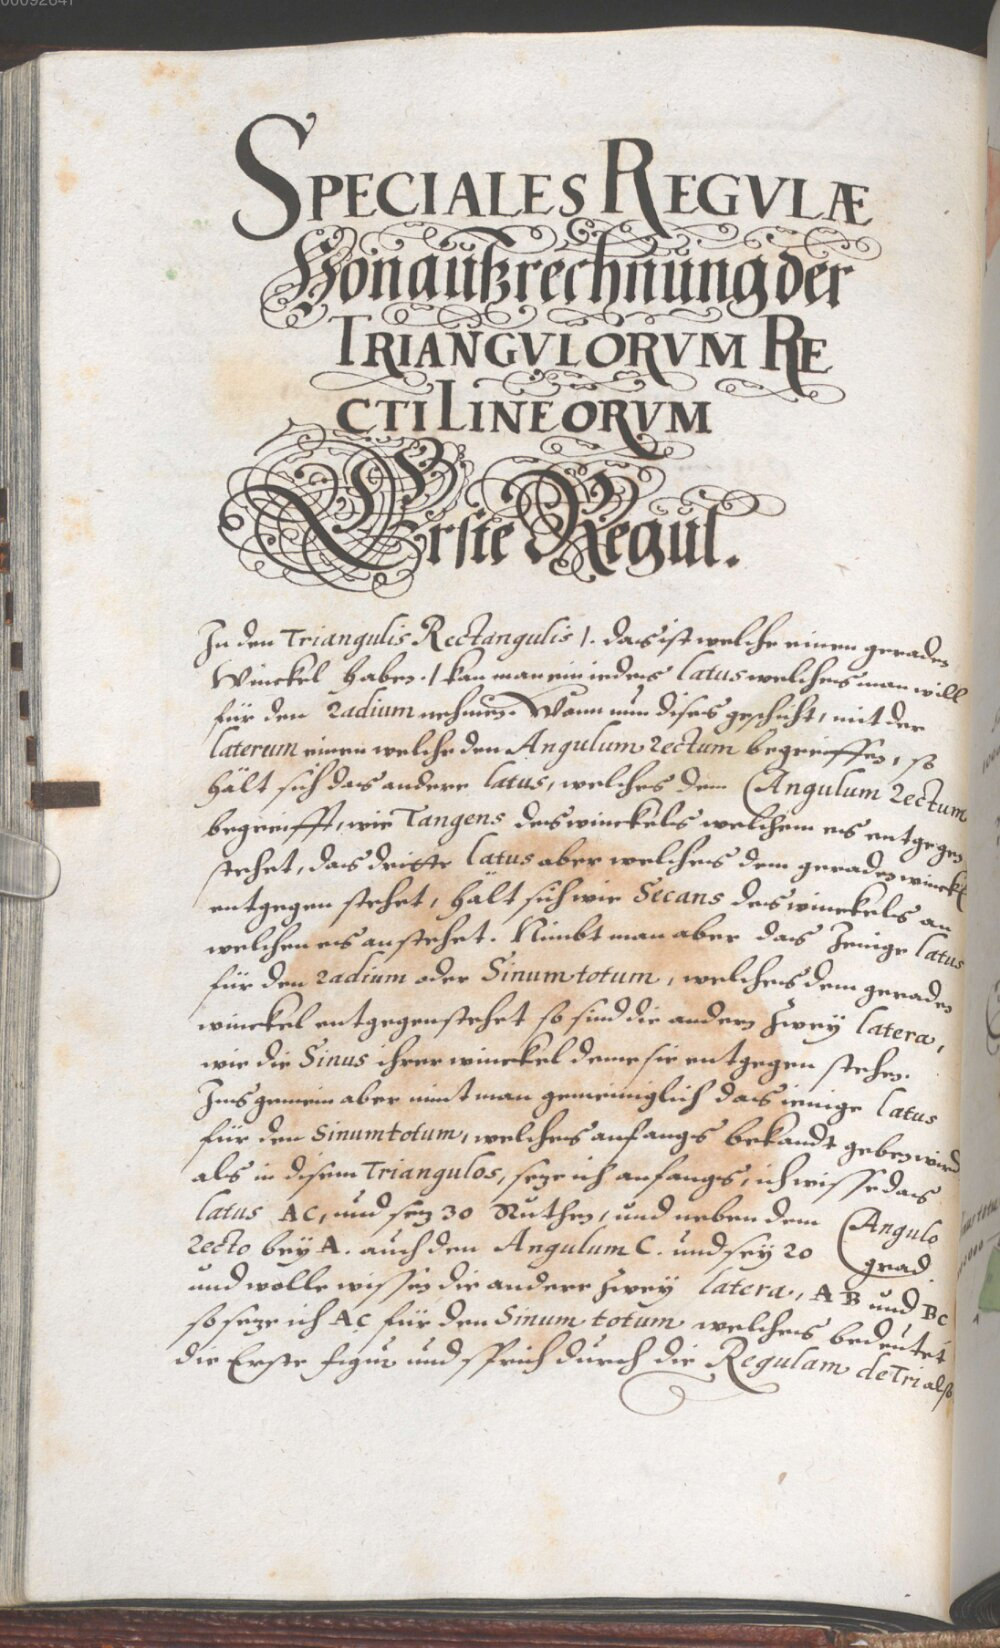 SPECIALES REGVLÆ
Von außrechnung der
TRIANGVLORVM RE
CTILINEORVM
Erste Regul.
In den Triangulis Rectangulis /. das ist welche einen geraden
Winckel haben. / kan man ein iedes latus welches man will
für den Radium nehmen. Wann nun dises geschicht, mit der
laterum einen welche den Angulum Rectum begreiffen, so
hält sich das andere latus, welches den (Angulum Rectum
begreifft, wie Tangens des winckels welchem es entgegen
stehet, das dritte latus aber welches dem geraden winckel
entgegen stehet, hält sich wie Secans des winckels an
welchen es anstehet. Nimbt man aber das Jenige latus
für den Radium oder Sinum totum, welches dem geraden
winckel entgegenstehet so sind die andern zwey latera,
wie die Sinus ihrer winckel deme sie entgegen stehen.
Ins gemein aber nimt man gemeiniglich das ienige latus
für den Sinum totum, welches anfangs bekandt geben wird
als in disem Triangulos, seze ich anfangs, ich wisse das
latus AC, und sey 30 Ruthen, und neben dem (Angulo
Recto bey A. auch den Angulum C. und sey 20 grad
und wolle wissen die andere zwey latera, AB und BC
so seze ich AC für den Sinum totum welches bedeutet
die Erste figur und sprich durch die Regulam de Tri also